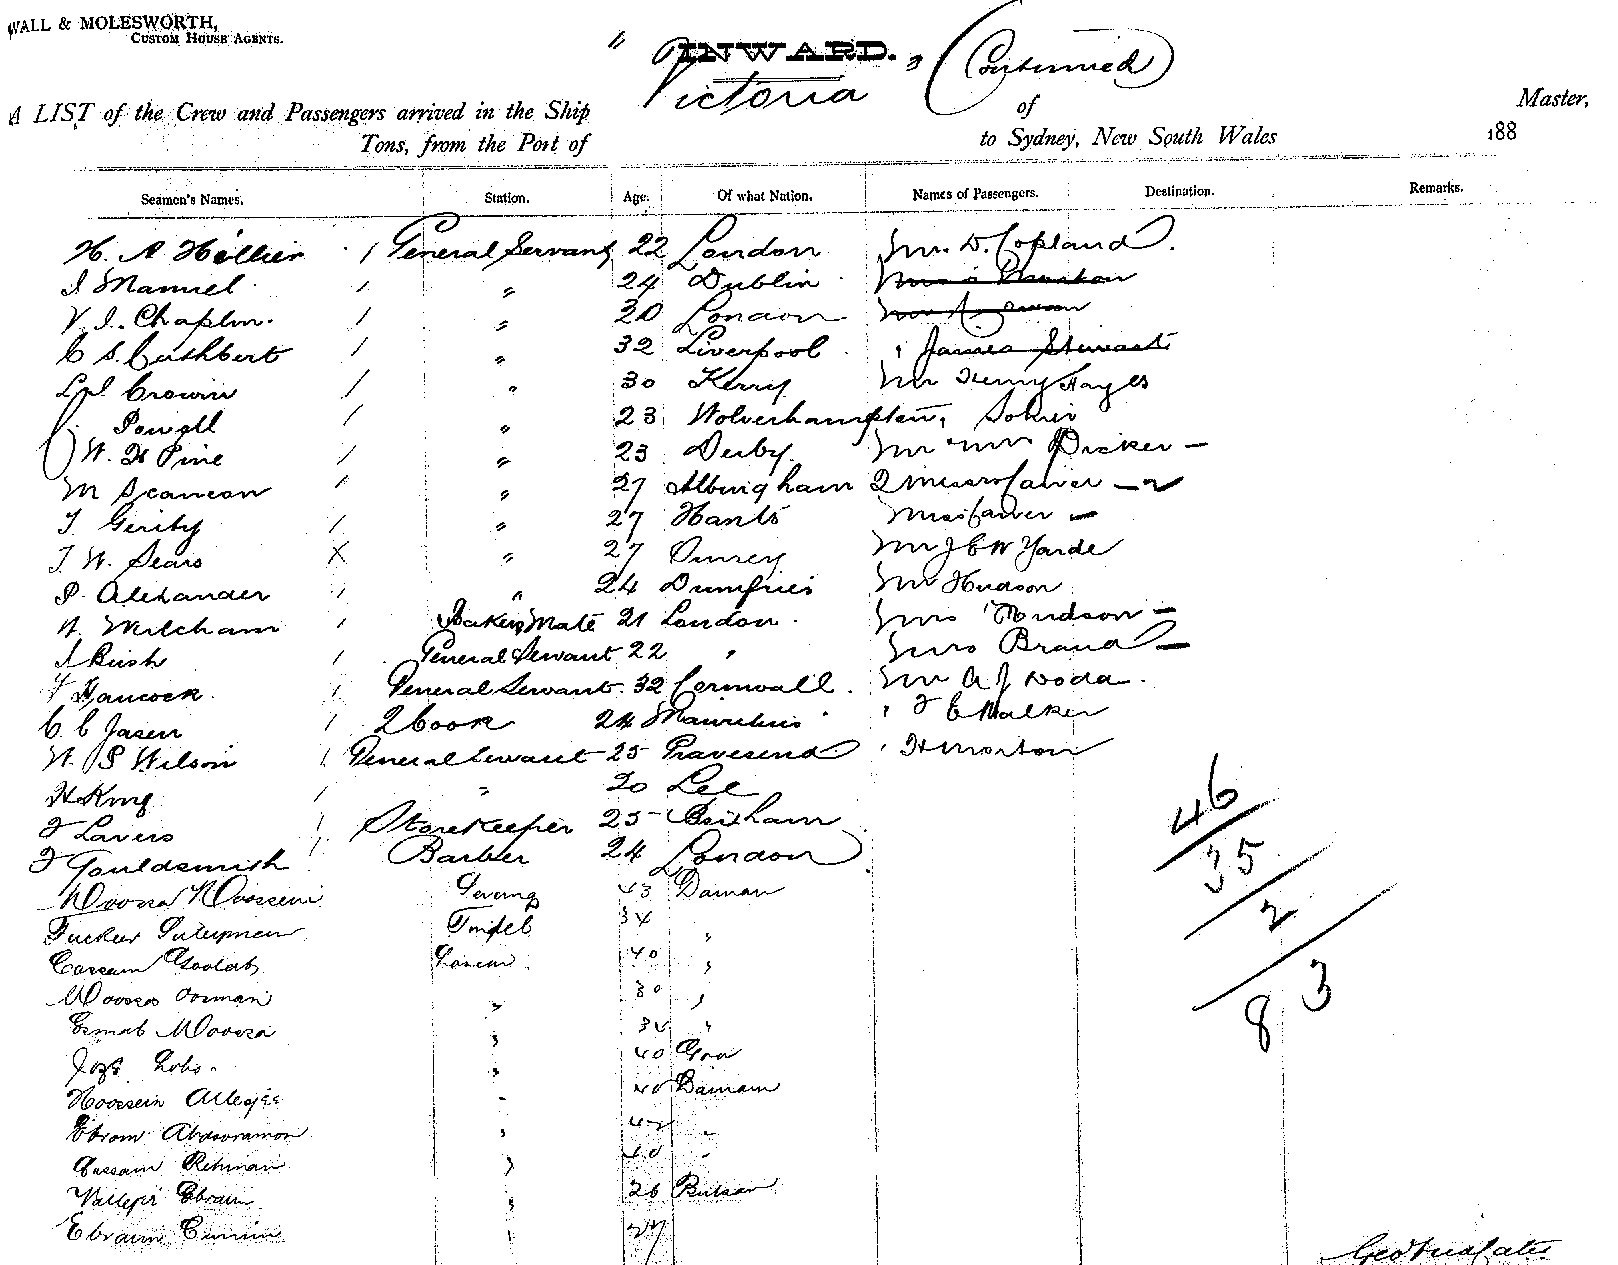 WALL & MOLESWORTH,
CUSTOM HOUSE AGENTS.
" INWARD. " (Continued)
Victoria
A LIST of the Crew and Passengers arrived in the Ship of Master,
Tons, from the Port of to Sydney, New South Wales 188
Seamen's Names. Station. Age. Of what Nation. Names of Passengers. Destination. Remarks.
H. A Hellier / General Servant 22 London Mr. D. Copland.
J Manuel / " 24 Dublin
V. J. Chaplin. / " 20 London
C S. Cuthbert / " 32 Liverpool " James Stewart
Crowin / " 30 Kerry Mr Henry Hayes
Powell / " 23 Wolverhampton,
W. H Pine / " 23 Derby Mr Mrs Dicker —
M Scanlon / " 27 2 Misses
T. Gerity / " 27 Hants Miss —
T. W. Sears X " 27 Mr J C W Yarde
P. Alexander / " 24 Dumfries Mr Hudson
A. Mitcham / Bakers Mate 21 London Mrs Hudson —
J Bush / General Servant 22 " Mrs Brand —
F Hancock / General Servant 32 Cornwall. Mr A J
C. C Jasen / 2 Cook 24 Mauritius " F C Walker
W. S Wilson / General Servant 25 Gravesend " H Morton
H King / " 20 Lee
F Lavers / Storekeeper 25 Brixham
F Gouldsmith / Barber 24 London
Moosa Hoossein 43 Daman
Tindel 34 "
Cassam Goolab Lascar 40 "
Moosa Osman " 30 "
Esmal Moosa " 34 "
Joze Lobo. " 40 Goa
Hoossein Alleejee " 40 Daman
Ebram Abdooramon " "
Cassam Rehman " 40 "
Valleji Ebram " 36 Bulsar
Ebraim "
46
35
2
83